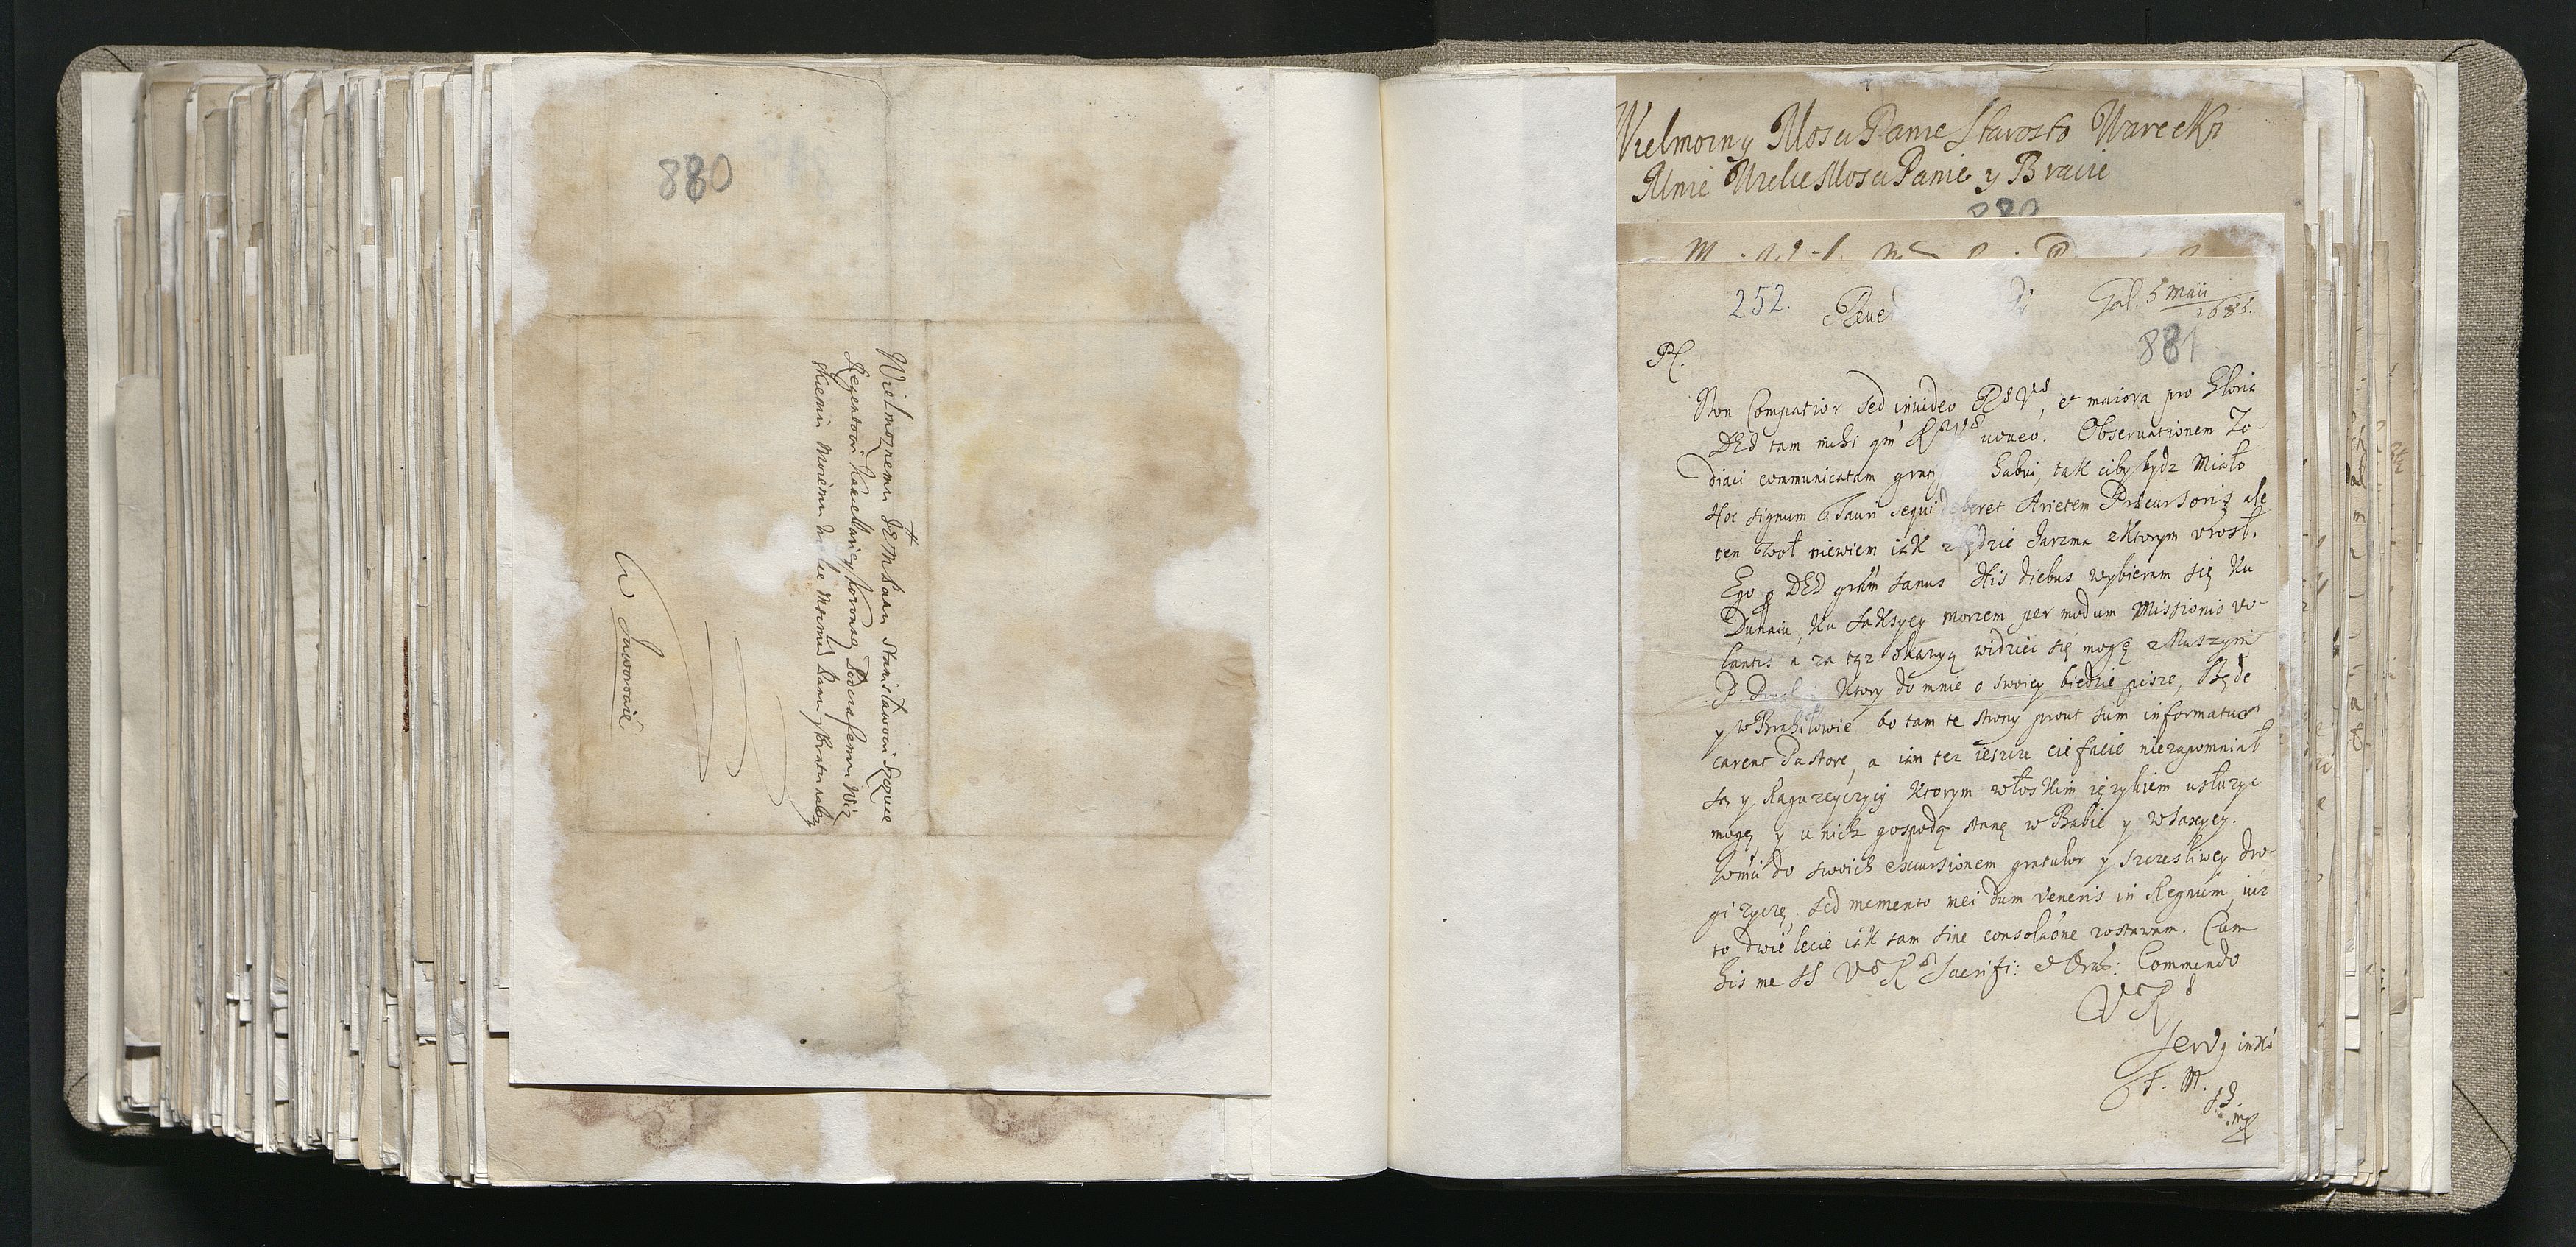 880
Wielmoznemu JE Mści Panu Stanisławowi Szczuce
Regentowi Kancellariey Koronney Podczaszemu Wiz
skiemu Moiemu Panu y Bratu
W Jaworowie
Wielmozny Mosci Panie Starosto Warecki
Mnie Wielce Mosci Panie y Bracie
880
252.
Gal. 5 Maii
1685.
881
PC.
Non Compatior sed inuideo Rae Vae, et maiora pro gloria
DEI tam mihi qm Rae Vae uoueo. Obseruationem Zo-
diaci communicatam habui, tak ciby bydz miało
Hoc signum Tauri sequi deberet Arietem Præcursoris ale
ten woł niewiem iak zbędzie Jarzma z ktorym vrosł.
Ego p DEI grãm sanus His diebus wybieram się ku
Dunaiu, ku morzem per modum Missionis vo-
lantis a za tąz okazyą widziec się mogę z Naszym
P. ktory do mnie o swoiey biedzie pisze, Będe
y w Brahiłowie bo tam te strony prout sum informatus
carent Pastore, a iam tez ieszcze niezapomniał
są y Raguzeyczycy ktorym włoskim ięzykiem usłuzyc
mogę y u nich gospodą stanę w Babie y w
do swoich excursionem gratulor y szczesliwey dro-
gi zyczę, sed memento mei dum veneris in Regnum, iuz
to dwie lecie iak sam sine consolaõne zostawam. Cum
his me SS Vae Rae Sacrifi: et Orat: Commendo
Vae Rae
Servg in Xo
F. M.
SJ.
mp